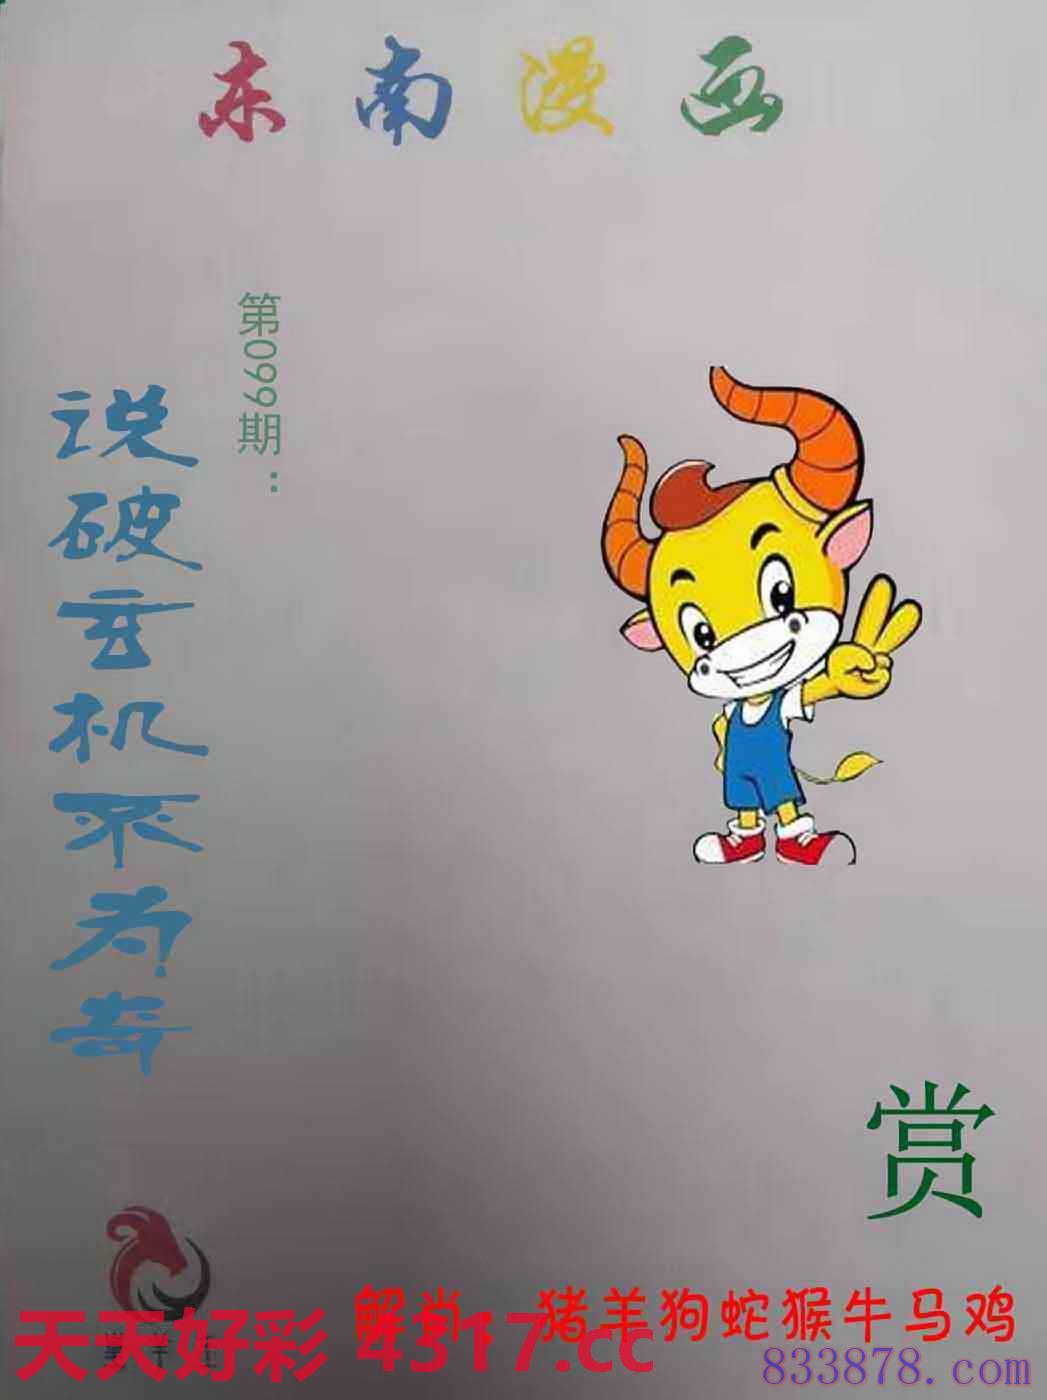 东南漫画
第099期：
说破玄机不为奇
赏
解肖：猪羊狗蛇猴牛马鸡
天天好彩 4317.cc
833878.com